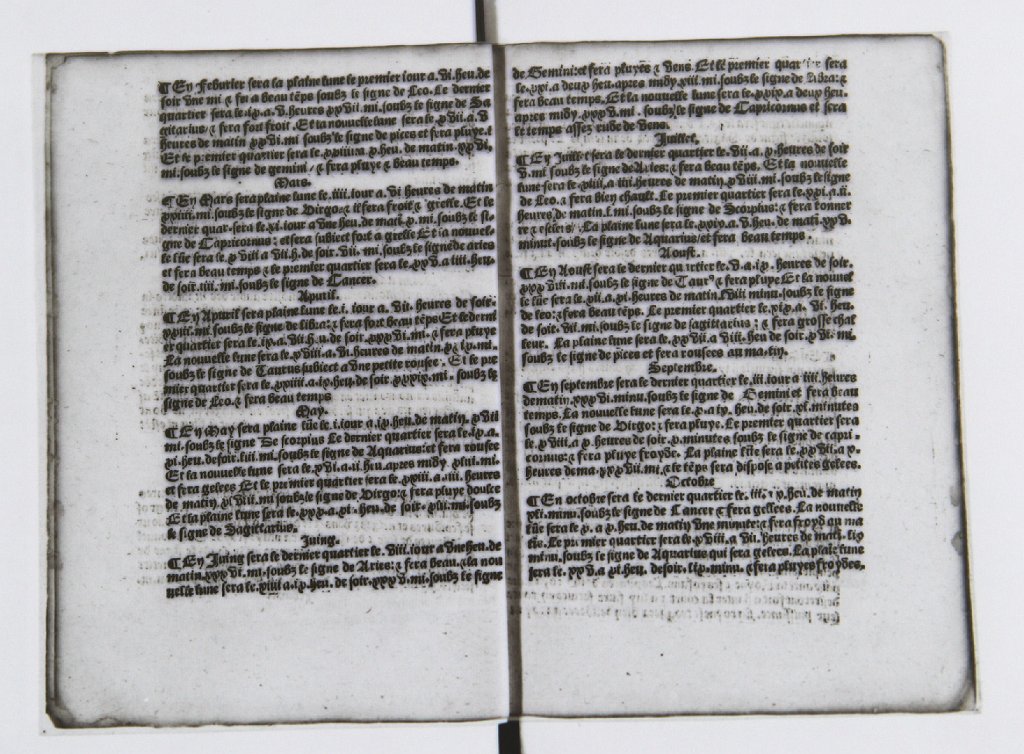 ¶ En Feburier sera la plaine lune le premier iour a. vi. heu. de
soir vne mi. & fei a beau tēps soubz le signe de Leo. Le dernier
quartier sera le. ix. a. v. heures xxvii. mi. soubz le signe de Sa
gitarius / & sera fort froit. Et la nouuelle lune sera le. xvii. a. v.
heures de matin xxvi mi. soubz le signe de pices et sera pluye. &
Et le premier quartier sera le. xxiiii. a. x. heu. de matin. xxvi.
mi. soubz le signe de gemini / & sera pluye & beau temps.
Mars.
¶ En Mars sera plaine lune le. iiii. iour a. vi heures de matin
xxiiii. mi. soubz le signe de Virgo: & il sera froit & gresle. Et le
dernier quar. sera le. xi. iour a vne heu. de mati. x. mi. soubz le si-
gne de Capricornus: et sera subiect fort a gresle Et la nouuel-
le lūe sera le. xviii a vii. h. de soir. vii. mi. soubz le signe de aries
et sera beau temps & le premier quartier sera le. xxv. a iiii. heu.
de soir. iiii. mi. soubz le signe de Cancer.
Apuril.
¶ En Apuril sera plaine lune le. i. iour a. vii. heures de soir.
xxiii. mi. soubz le signe de libra: & sera fort beau tēps Et le derni
er quartier sera le. ix. a. vii. h. de soir xxvi. mi. & sera pluye
La nouuelle lune sera le. xviii. a. vi. heures de matin. xix. mi.
soubz le signe de Taurus subiect a vne petite rousee. Et le pre
mier quartier sera le. xxiiii. a. ix. heu. de soir. xxxix. mi. soubz le
signe de Leo. & sera beau temps
May.
¶ En May sera plaine lūe le. i. iour a. ix. heu. de matin. xvii
mi. soubz le signe De scorpius Le dernier quartier sera le. ix. a.
xi. heu. de soir. liii. mi. soubz le signe de Aquarius: et sera rousee
Et la nouuelle lune sera le. xvi. a. ii. heu. apres midy xlvi. mi.
et sera gelees Et le premier quartier sera le. xxiii. a. iii. heures
de matin. xlviii. mi. soubz le signe de Virgo: & sera pluye doulce
Et la plaine lune sera le. xxx. a. xi. heu. de soir. xli. mi. soubz
le signe de Sagittarius.
Juing.
¶ En Juing sera le dernier quartier le. viii. iour a vne heu. de
matin. xxxvi. mi. soubz le signe de Aries: & sera beau. & la nou
uelle lune sera le. xiiii a. ix. heu. de soir. xxxv. mi. soubz le signe
de Gemini: et sera pluyes & vens. Et le premier quartier sera
le. xxi. a deux heu. apres midy. xiii. mi. soubz le signe de Libra: &
sera beau temps. Et la nouuelle lune sera le. xxix. a deux heu.
apres midy. xxxv. mi. soubz le signe de Capricornus et sera
le temps assez rude de vens.
Juillet.
¶ En Juillet sera le dernier quartier le. vii. a. x. heures de soir
v. mi. soubz le signe de Aries: & sera beau tēps. Et la nouuelle
lune sera le. xiiii. a iiii. heures de matin. xviii. mi. soubz le signe
de Leo. & sera bien chault. Le premier quartier sera le. xxi. a. ii.
heures de matin. l. mi. soubz le signe de Scorpius: & sera tonner
re & esclers. La plaine lune sera le. xxix. a. v. heu. de mati. xxv.
minut. soubz le signe de Aquarius / et sera beau temps.
Aoust.
¶ En Aoust sera le dernier quartier le. v. a. ix. heures de soir.
xxxvii. mi. soubz le signe de Taur9 & sera pluye Et la nouuel
le lūe sera le. xii. a. xi. heures de matin. lviii minu. soubz le signe
de leo: & sera beau temps. Le premier quartier le. xix. a. vi. heu.
de soir. vii. mi. soubz le signe de sagittarius: & sera grosse chal
leur. La plaine lune sera le. xxvii. a. viii. heu. de soir xvi. mi.
soubz le signe de pices et sera rousees au matin.
Septembre.
¶ En septembre sera le dernier quartier le. iii. iour a iiii. heures
de matin. xxxvi. minu. soubz le signe de Gemini et sera beau
temps. La nouuelle lune sera le. x. a ix. heu. de soir. xl. minutes
soubz le signe de Virgo: & sera pluye. Le premier quartier sera
le. xviii. a. x. heures de soir. x. minutes soubz le signe de capri-
cornus: & sera pluye froyde. La plaine lūe sera le. xxvii. a. x.
heures de ma. xxxvii. mi. & le tēps sera dispose a petites gelees.
Octobre
¶ En octobre sera le dernier quartier le. iii. a x. heu. de matin
xli. minu. soubz le signe de Cancer & sera gellees. La nouuelle
lūe sera le. x. a x. heu. de matin vne minute: & sera froyd au ma
tin. Le premier quartier sera le. xviii. a vii. heures de mati. lix
minu. soubz le signe de Aquarius qui sera gelees. La plaine lune
sera le. xxv. a xi. heu. de soir. lix. minu. & sera pluyes froydes.